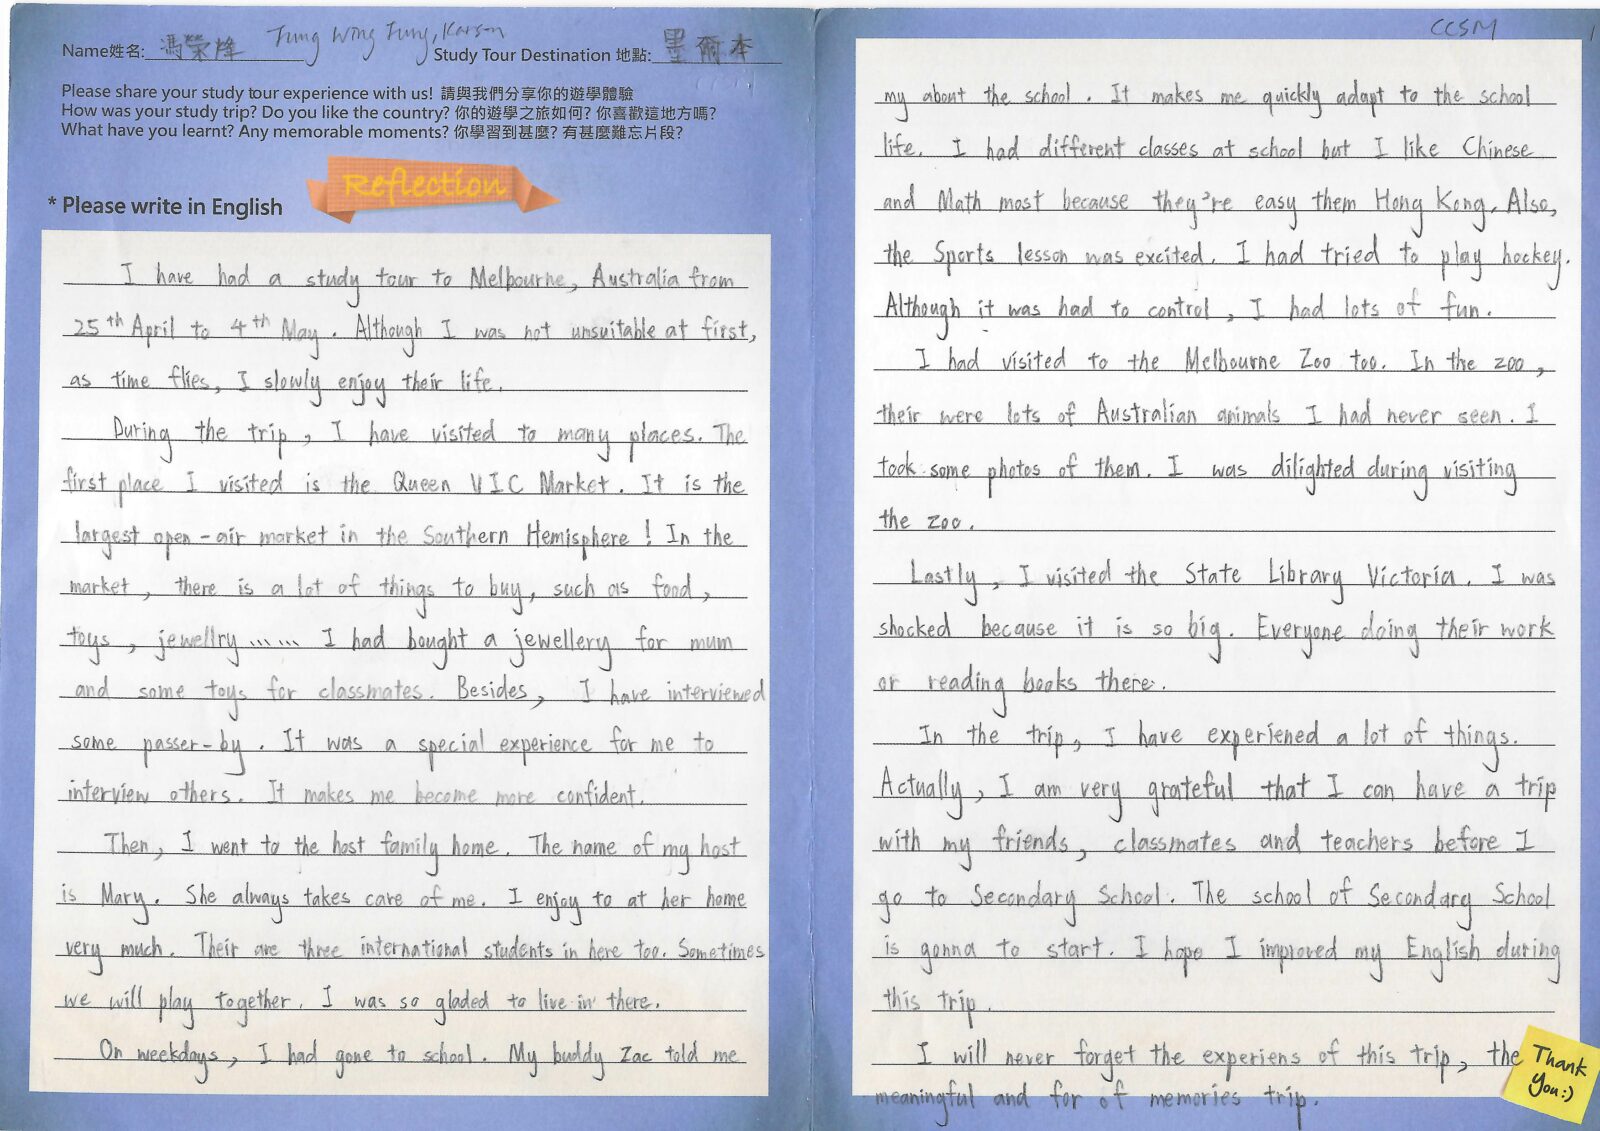 Name姓名: 馮榮烽 Fung Wing Fung, Karson
Study Tour Destination 地點: 墨爾本
Please share your study tour experience with us! 請與我們分享你的遊學體驗
How was your study trip? Do you like the country? 你的遊學之旅如何? 你喜歡這地方嗎?
What have you learnt? Any memorable moments? 你學習到甚麼? 有甚麼難忘片段?
Reflection
* Please write in English
I have had a study tour to Melbourne, Australia from
25th April to 4th May. Although I was not unsuitable at first,
as time flies, I slowly enjoy their life.
During the trip, I have visited to many places. The
first place I visited is the Queen VIC Market. It is the
largest open-air market in the Southern Hemisphere! In the
market, there is a lot of things to buy, such as food,
toys, jewellry...... I had bought a jewellery for mum
and some toys for classmates. Besides, I have interviewed
some passer-by. It was a special experience for me to
interview others. It makes me become more confident.
Then, I went to the host family home. The name of my host
is Mary. She always takes care of me. I enjoy to at her home
very much. Their are three international students in here too. Sometimes
we will play together. I was so gladed to live in there.
On weekdays, I had gone to school. My buddy Zac told me
CCSM
my about the school. It makes me quickly adapt to the school
life. I had different classes at school but I like Chinese
and Math most because they're easy them Hong Kong. Also,
the Sports lesson was excited. I had tried to play hockey.
Although it was had to control, I had lots of fun.
I had visited to the Melbourne Zoo too. In the zoo,
their were lots of Australian animals I had never seen. I
took some photos of them. I was dilighted during visiting
the zoo.
Lastly, I visited the State Library Victoria. I was
shocked because it is so big. Everyone doing their work
or reading books there.
In the trip, I have experiened a lot of things.
Actually, I am very grateful that I can have a trip
with my friends, classmates and teachers before I
go to Secondary School. The school of Secondary School
is gonna to start. I hope I improved my English during
this trip.
I will never forget the experiens of this trip, the
meaningful and for of memories trip.
Thank
You:)